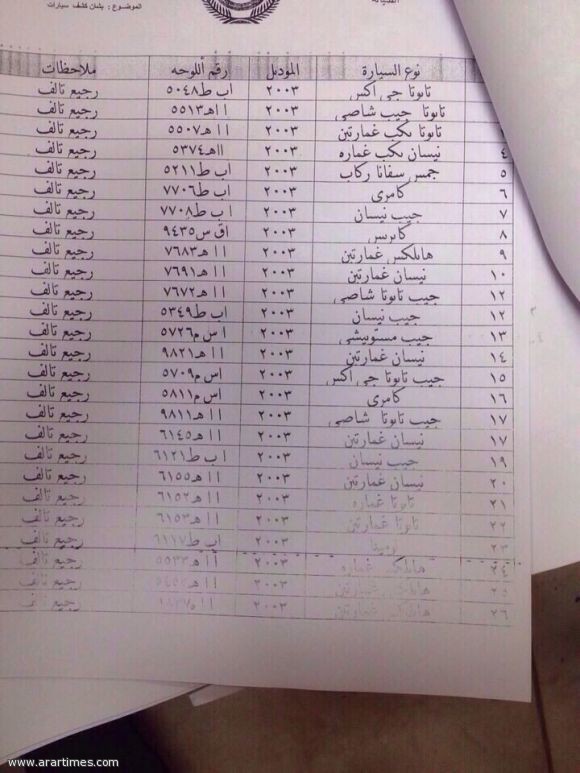 الموضوع : بشان كشف سيارات
نوع السيارة الموديل رقم أللوحه ملاحظات
تايوتا جي اكس ٢٠٠٣ اب ط٥٠٤٨ رجيع تالف
تايوتا جيب شاصي ٢٠٠٣ ااهـ٥٥١٣ رجيع تالف
تايوتا بكب غمارتين ٢٠٠٣ ا اهـ٥٥٠٧ رجيع تالف
٤ نيسان بكب غماره ٢٠٠٣ ااهـ٥٣٧٤ رجيع تالف
٥ جمس سفانا ركاب ٢٠٠٣ اب ط٥٢١١ رجيع تالف
٦ كامري ٢٠٠٣ اب ط٧٧٠٦ رجيع تالف
٧ جيب نيسان ٢٠٠٣ ا ب ط٧٧٠٨ رجيع تالف
٨ كابريس ٢٠٠٣ اق س٩٤٣٥ رجيع تالف
٩ هايلكس غمارتين ٢٠٠٣ ا اهـ٧٦٨٣ رجيع تالف
١٠ نيسان غمارتين ٢٠٠٣ ا اهـ٧٦٩١ رجيع تالف
١٢ جيب تايوتا شاصي ٢٠٠٣ ا اهـ٧٦٧٢ رجيع تالف
١٢ جيب نيسان ٢٠٠٣ اب ط٥٣٤٩ رجيع تالف
١٣ جيب متسوبيشي ٢٠٠٣ ا س م٥٧٢٦ رجيع تالف
١٤ نيسان غمارتين ٢٠٠٣ ا اهـ٩٨٢١ رجيع تالف
١٥ جيب تايوتا جي اكس ٢٠٠٣ اس م٥٧٠٩ رجيع تالف
١٦ كامري ٢٠٠٣ اس م٥٨١١ رجيع تالف
١٧ جيب تايوتا شاصي ٢٠٠٣ ا اهـ٩٨١١ رجيع تالف
١٧ نيسان غمارتين ٢٠٠٣ ا اهـ٦١٤٥ رجيع تالف
١٩ جيب نيسان ٢٠٠٣ اب ط٦١٢١ رجيع تالف
٢٠ نيسان غمارتين ٢٠٠٣ ا اهـ٦١٥٥ رجيع تالف
٢١ تايوتا غماره ٢٠٠٣ ا اهـ٦١٥٢ رجيع تالف
٢٢ تايوتا غمارتين ٢٠٠٣ ا اهـ٦١٥٣ رجيع تالف
٢٣ ٢٠٠٣ اب ط٦١١٧ رجيع تالف
٢٤ هايلكس غماره ٢٠٠٣ ا اهـ٥٥٣٣ رجيع تالف
٢٥ غمارتين ٢٠٠٣ رجيع تالف
٢٦ غمارتين ٢٠٠٣ رجيع تالف
www.arartimes.com